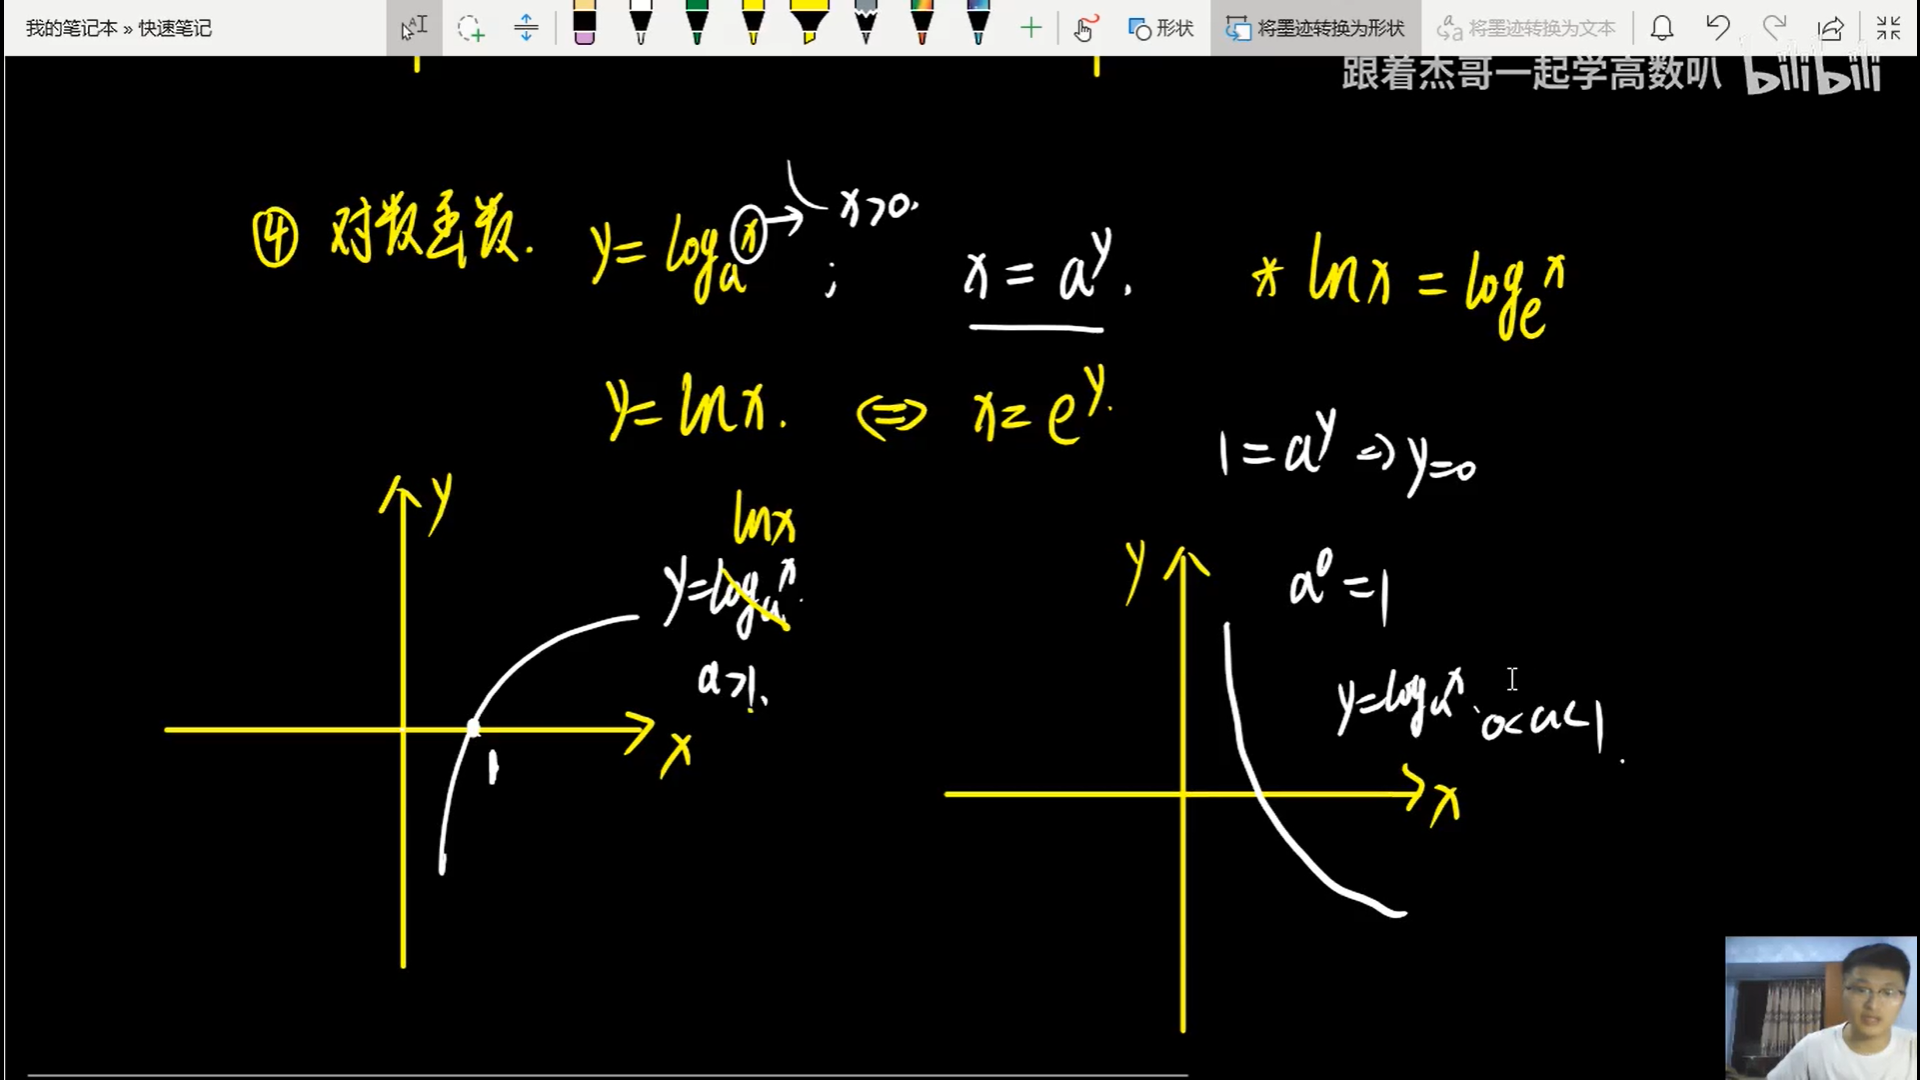 我的笔记本 » 快速笔记
形状
将墨迹转换为形状
将墨迹转换为文本
跟着杰哥一起学高数叭 bilibili
④ 对数函数. y = logₐx → x>0. ; x = aʸ. * lnx = logₑx
y = lnx. <=> x = eʸ.
1 = aʸ => y=0
y
lnx
y = logₐx.
a>1.
1
x
y
a⁰ = 1
y = logₐx. 0<a<1.
x